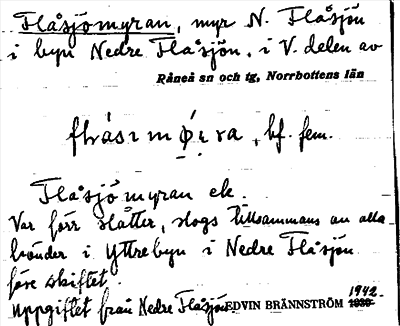 Flåsjömyran, myr N. Flåsjön
i byn Nedre Flåsjön, i V. delen av
Råneå sn och tg, Norrbottens län
bf. fem.
Flåsjömyran ek.
Var förr slåtter, slogs tillsammans av alla
bönder i Yttrebyn i Nedre Flåsjön
före skiftet.
Uppgiftet från Nedre Flåsjön. EDVIN BRÄNNSTRÖM 1942